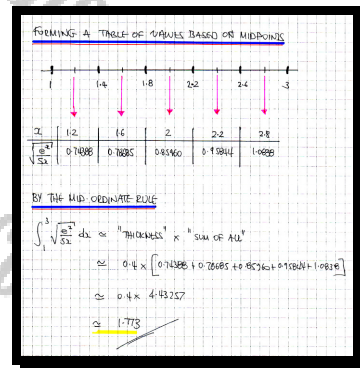 FORMING A TABLE OF VALUES BASED ON MIDPOINTS
1 1.4 1.8 2.2 2.6 3
x 1.2 1.6 2 2.2 2.8
√(e^x/5x) 0.74388 0.78685 0.85960 0.95844 1.0838
BY THE MID-ORDINATE RULE
∫₁³ √(e^x/5x) dx ≃ "THICKNESS" × "SUM OF ALL"
≃ 0.4 × [0.74388 + 0.78685 + 0.85960 + 0.95844 + 1.0838]
≃ 0.4 × 4.43257
≃ 1.773